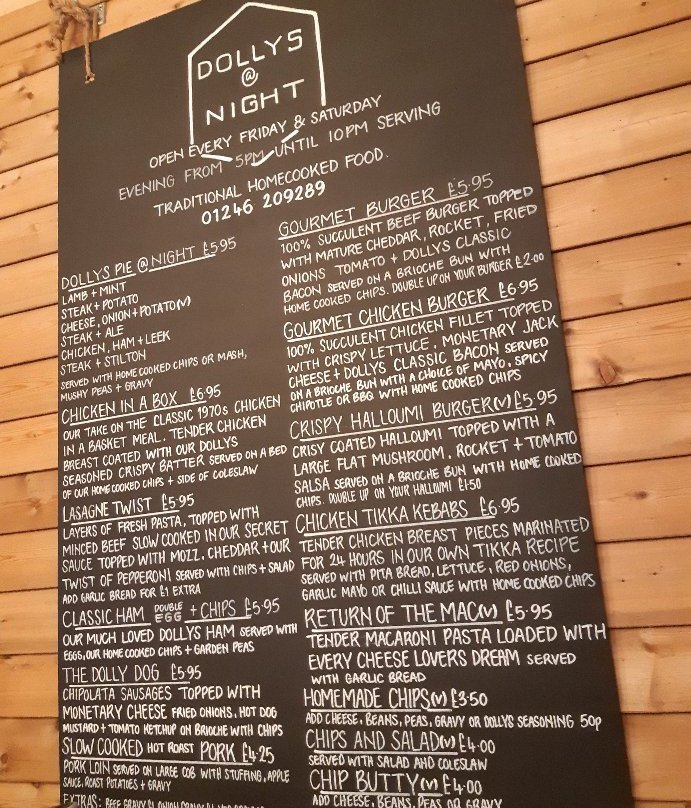 DOLLYS
@
NIGHT
OPEN EVERY FRIDAY & SATURDAY
EVENING FROM 5PM UNTIL 10PM SERVING
TRADITIONAL HOMECOOKED FOOD.
01246 209289
DOLLYS PIE @ NIGHT £5.95
LAMB + MINT
STEAK + POTATO
CHEESE, ONION + POTATO (V)
STEAK + ALE
CHICKEN, HAM + LEEK
STEAK + STILTON
SERVED WITH HOME COOKED CHIPS OR MASH,
MUSHY PEAS + GRAVY
CHICKEN IN A BOX £6.95
OUR TAKE ON THE CLASSIC 1970s CHICKEN
IN A BASKET MEAL. TENDER CHICKEN
BREAST COATED WITH OUR DOLLYS
SEASONED CRISPY BATTER SERVED ON A BED
OF OUR HOME COOKED CHIPS + SIDE OF COLESLAW
LASAGNE TWIST £5.95
LAYERS OF FRESH PASTA, TOPPED WITH
MINCED BEEF SLOW COOKED IN OUR SECRET
SAUCE TOPPED WITH MOZZ, CHEDDAR + OUR
TWIST OF PEPPERONI SERVED WITH CHIPS + SALAD
ADD GARLIC BREAD FOR £1 EXTRA
CLASSIC HAM DOUBLE EGG + CHIPS £5.95
OUR MUCH LOVED DOLLYS HAM SERVED WITH
EGGS, OUR HOME COOKED CHIPS + GARDEN PEAS
THE DOLLY DOG £5.95
CHIPOLATA SAUSAGES TOPPED WITH
MONETARY CHEESE FRIED ONIONS, HOT DOG
MUSTARD + TOMATO KETCHUP ON BRIOCHE WITH CHIPS
SLOW COOKED HOT ROAST PORK £4.25
PORK LOIN SERVED ON LARGE COB WITH STUFFING, APPLE
SAUCE, ROAST POTATOES + GRAVY
EXTRAS: BEEF GRAVY £1 ONION
GOURMET BURGER £5.95
100% SUCCULENT BEEF BURGER TOPPED
WITH MATURE CHEDDAR, ROCKET, FRIED
ONIONS TOMATO + DOLLYS CLASSIC
BACON SERVED ON A BRIOCHE BUN WITH
HOME COOKED CHIPS. DOUBLE UP ON YOUR BURGER £2.00
GOURMET CHICKEN BURGER £6.95
100% SUCCULENT CHICKEN FILLET TOPPED
WITH CRISPY LETTUCE, MONETARY JACK
CHEESE + DOLLYS CLASSIC BACON SERVED
ON A BRIOCHE BUN WITH A CHOICE OF MAYO, SPICY
CHIPOTLE OR BBQ WITH HOME COOKED CHIPS
CRISPY HALLOUMI BURGER (V) £5.95
CRISY COATED HALLOUMI TOPPED WITH A
LARGE FLAT MUSHROOM, ROCKET + TOMATO
SALSA SERVED ON A BRIOCHE BUN WITH HOME COOKED
CHIPS. DOUBLE UP ON YOUR HALLOUMI £1.50
CHICKEN TIKKA KEBABS £6.95
TENDER CHICKEN BREAST PIECES MARINATED
FOR 24 HOURS IN OUR OWN TIKKA RECIPE
SERVED WITH PITA BREAD, LETTUCE, RED ONIONS,
GARLIC MAYO OR CHILLI SAUCE WITH HOME COOKED CHIPS
RETURN OF THE MAC (V) £5.95
TENDER MACARONI PASTA LOADED WITH
EVERY CHEESE LOVERS DREAM SERVED
WITH GARLIC BREAD
HOMEMADE CHIPS (V) £3.50
ADD CHEESE, BEANS, PEAS, GRAVY OR DOLLYS SEASONING 50p
CHIPS AND SALAD (V) £4.00
SERVED WITH SALAD AND COLESLAW
CHIP BUTTY (V) £4.00
ADD CHEESE, BEANS, PEAS OR GRAVY